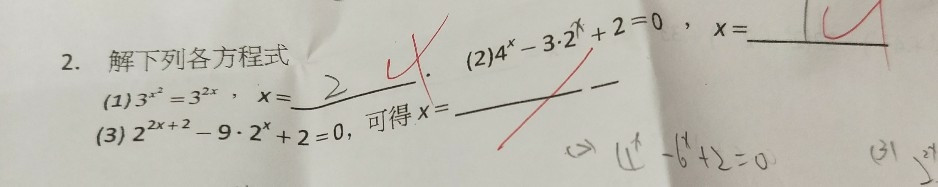 2. 解下列各方程式
(1) 3^{x^2} = 3^{2x} ， x = 2 . (2) 4^x − 3·2^x + 2 = 0 ， x = 1
(3) 2^{2x+2} − 9·2^x + 2 = 0，可得 x =
(2) 4^x - 6^x + 2 = 0 (3) 2^{2x}